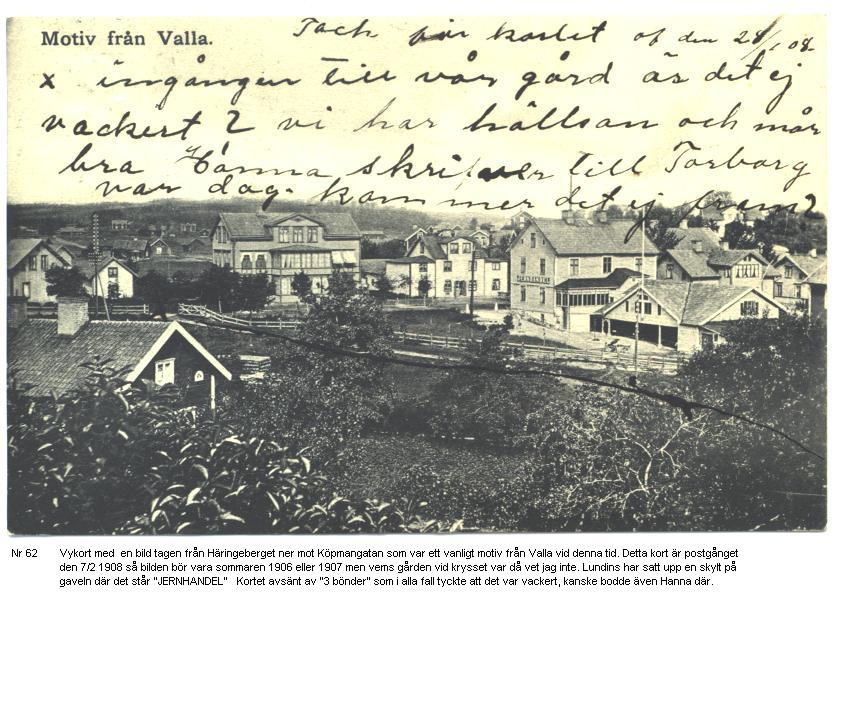 Motiv från Valla.
Tack för kortet af den 28/1 08.
x ingången till vår gård är det ej
vackert? vi har hällsan och mår
bra Hanna skrifver till Torborg
var dag. kommer det ej fram?
JERNHANDEL
Nr 62 Vykort med en bild tagen från Häringeberget ner mot Köpmangatan som var ett vanligt motiv från Valla vid denna tid. Detta kort är postgånget
den 7/2 1908 så bilden bör vara sommaren 1906 eller 1907 men vems gården vid krysset var då vet jag inte. Lundins har satt upp en skylt på
gaveln där det står "JERNHANDEL" Kortet avsänt av "3 bönder" som i alla fall tyckte att det var vackert, kanske bodde även Hanna där.